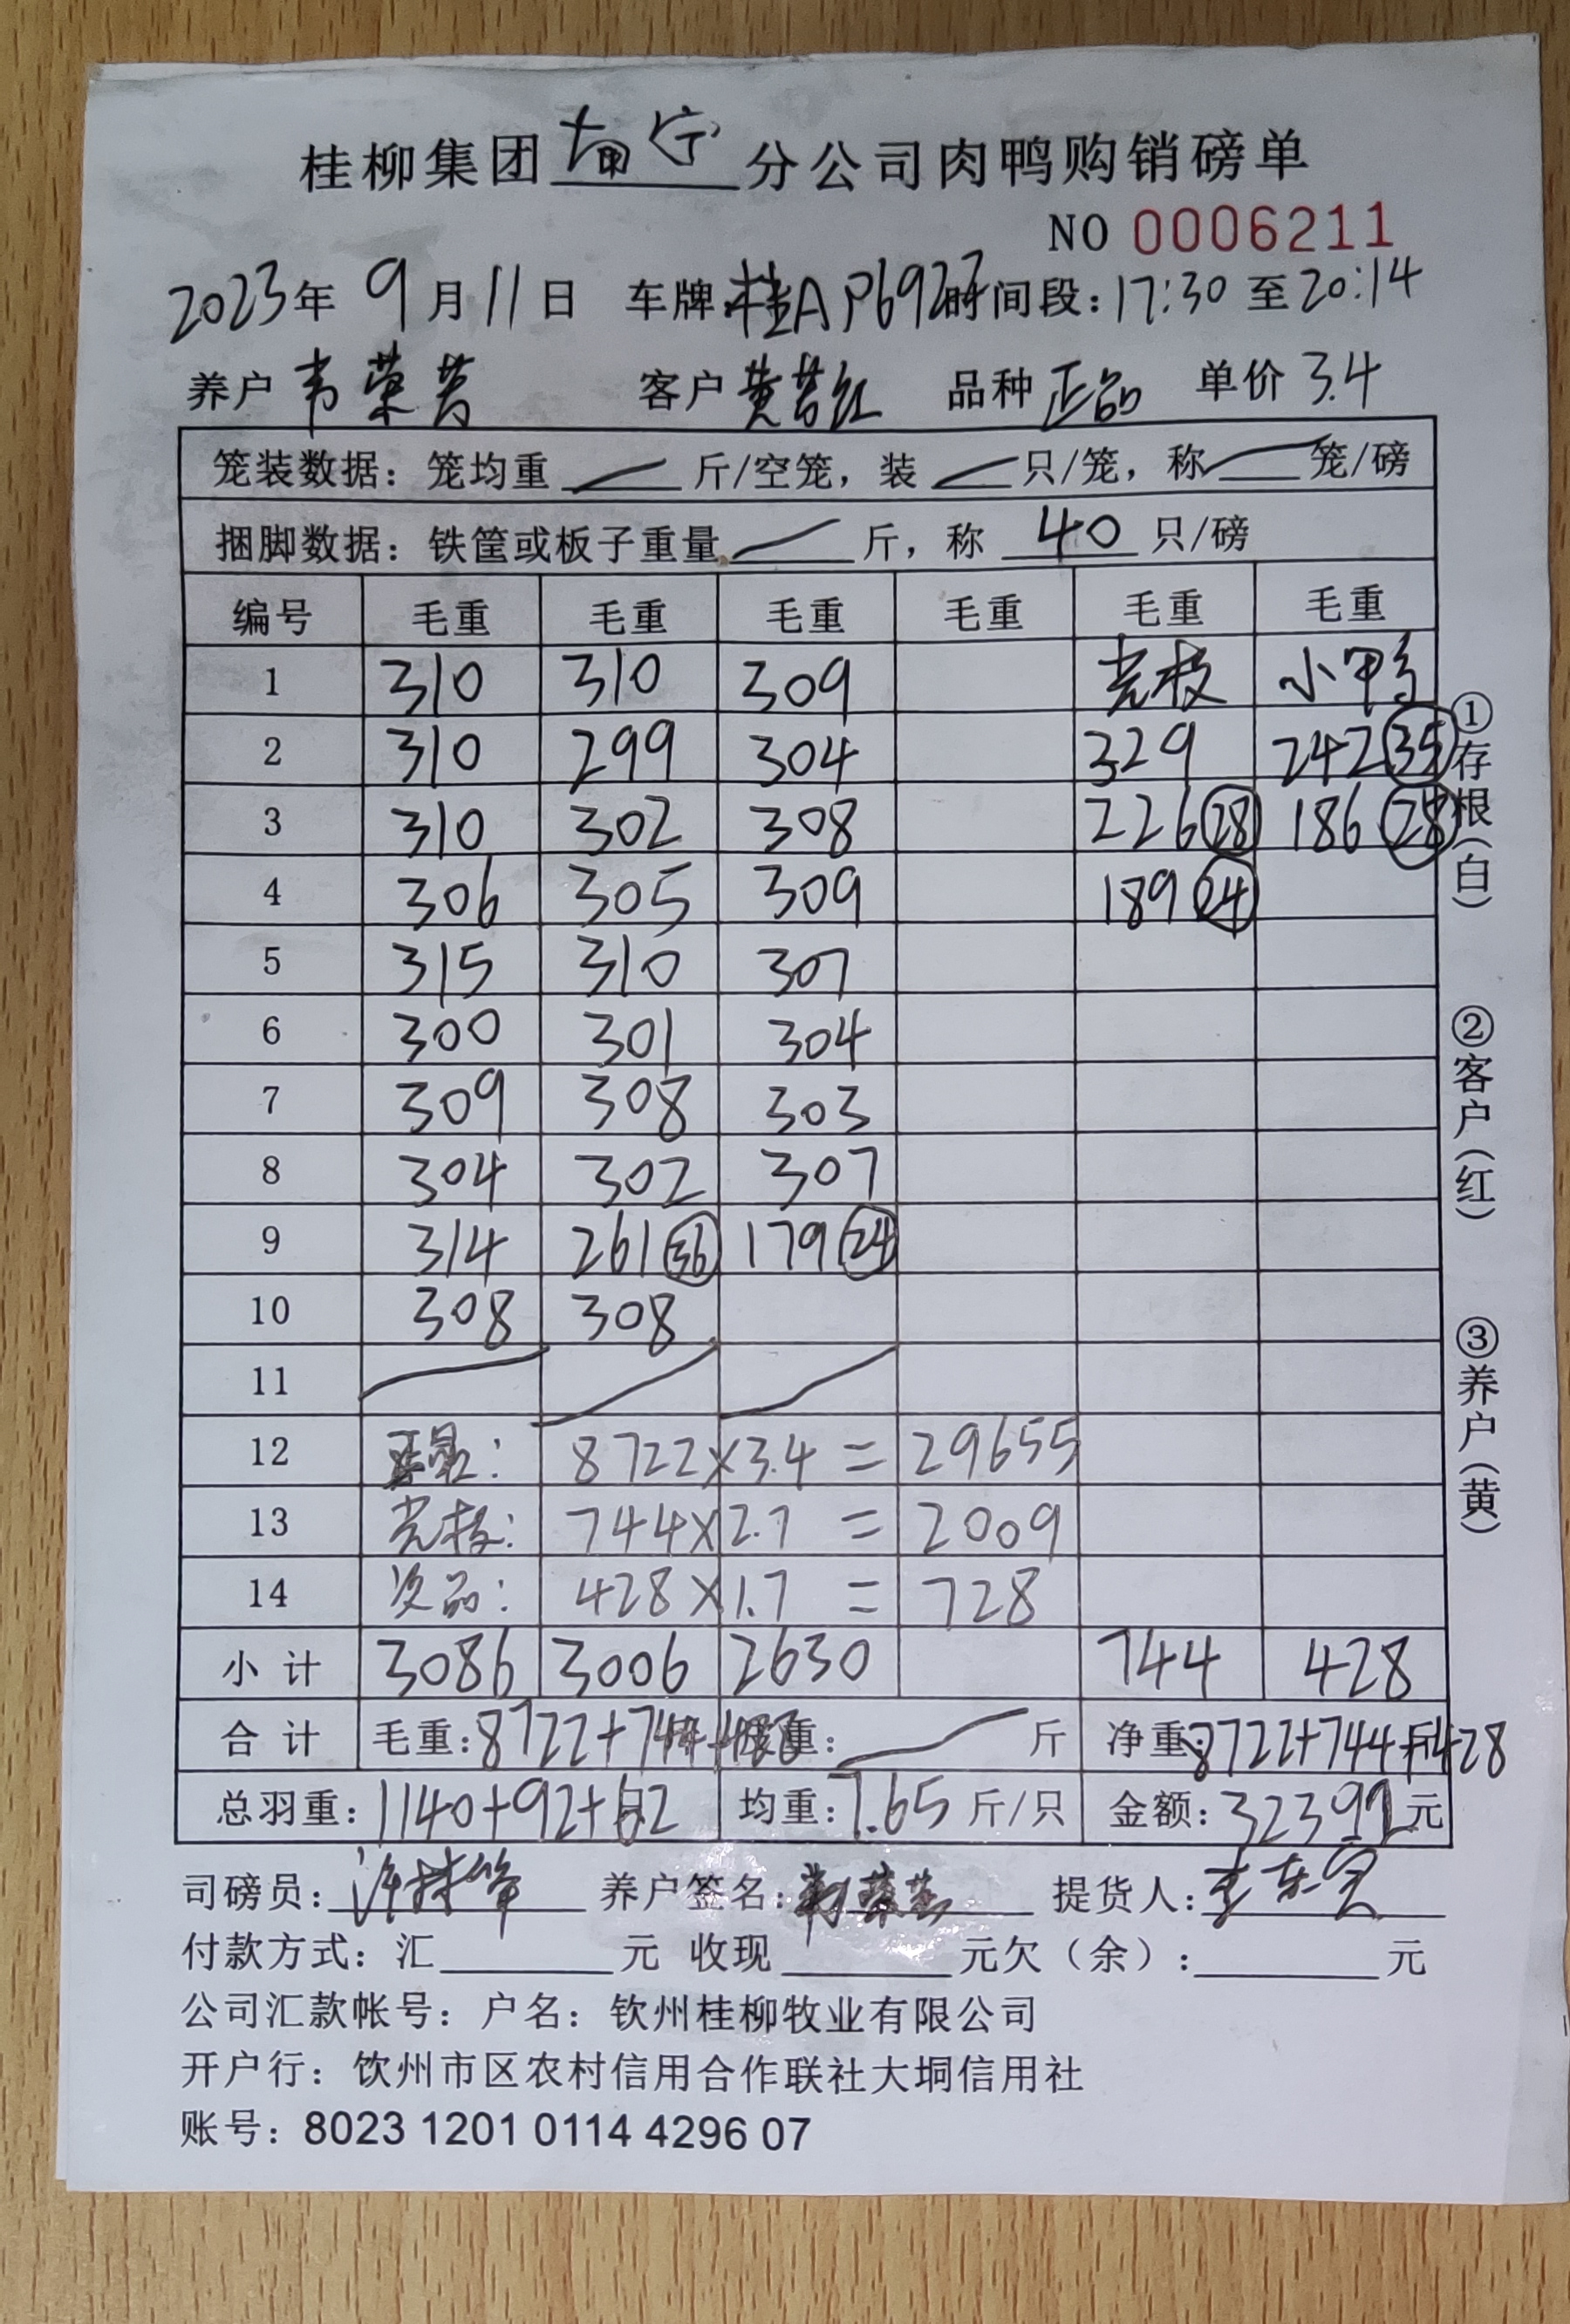 桂柳集团南宁分公司肉鸭购销磅单
NO 0006211
2023年 9月11日 车牌:桂AP692 时间段:17:30至20:14
养户 韦荣芳 客户 黄若红 品种 正品 单价 3.4
笼装数据:笼均重 斤/空笼,装 只/笼,称 笼/磅
捆脚数据:铁筐或板子重量 斤,称 40 只/磅
编号 毛重 毛重 毛重 毛重 毛重 毛重
1 310 310 309 光枝 小鸭
2 310 299 304 329 242 35
3 310 302 308 226 28 186 28
4 306 305 309 189 24
5 315 310 307
6 300 301 304
7 309 308 303
8 304 302 307
9 314 261 36 179 24
10 308 308
11
12 正品: 8722×3.4 = 29655
13 光枝: 744×2.7 = 2009
14 次品: 428×1.7 = 728
小计 3086 3006 2630 744 428
合计 毛重:8722+744+428 重: 斤 净重:8722+744+428
总羽重:1140+92+62 均重:7.65斤/只 金额:32392元
司磅员: 养户签名: 提货人:
付款方式:汇 元 收现 元欠(余): 元
公司汇款帐号:户名:钦州桂柳牧业有限公司
开户行:钦州市区农村信用合作联社大垌信用社
账号:8023 1201 0114 4296 07
①存根(白)
②客户(红)
③养户(黄)